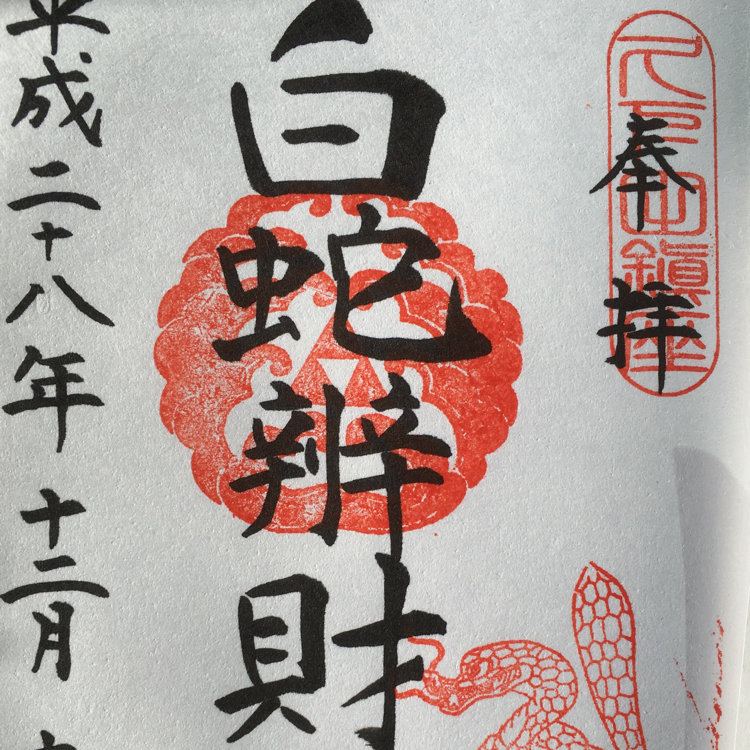 奉拝
鎮座
白蛇辨財
平成二十八年十二月